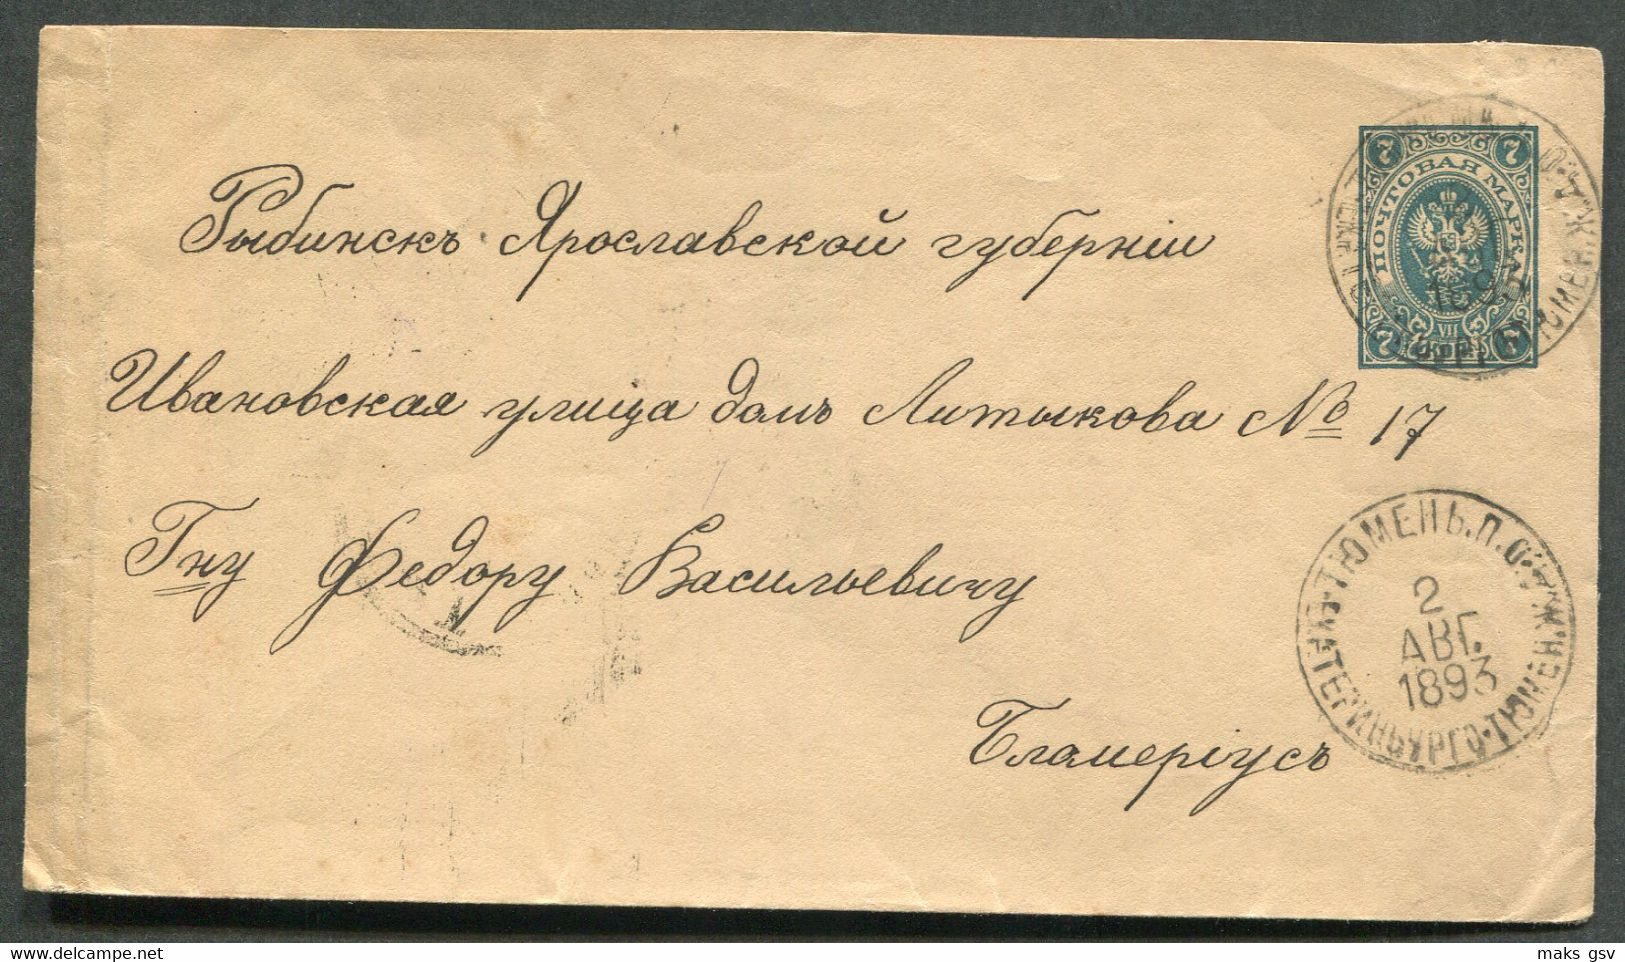 7 7
ПОЧТОВАЯ МАРКА
189
VII
7 КОП. 7
Рыбинскъ Ярославской губерніи
Ивановская улица домъ Литыкова № 17
Гну Федору Васильевичу
Бламеріусъ
ТЮМЕНЬ.П.О.Ж.Д.
2
АВГ.
1893
ЕКАТЕРИНБУРГО-ТЮМЕН.
maks gsv